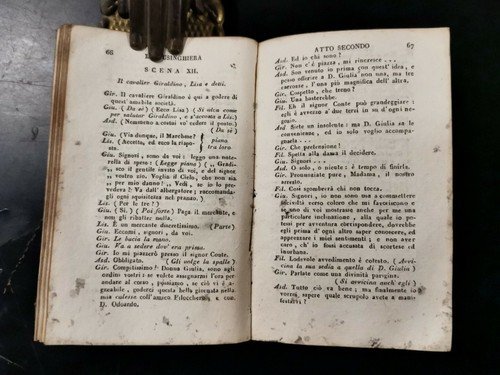 66
LUSINGHIERA
SCENA XII.
Il cavalier Giraldino, Lisa e detti.
Gir. Il cavaliere Giraldino è qui a godere di
quest' amabile società.
Giu. (Da sè) (Ecco Lisa) (Si alza come
per salutar Giraldino, e s'accosta a Lis.)
Asd. (Nemmeno a costui vo' cedere il posto.)
(Da sè)
Giu. (Vïa dunque, il Marchese?
Lis. (Accetta, ed ecco la rispo-
sta.
piano
tra loro.
Giu. Signori, sono da voi: leggo una nota-
rella di spese: (Legge piano) (,, Gradi-
,, sco il gentile invito di voi, e del signor
,, vostro zio. Voglia il Cielo, che non sia
,, per mio danno!,, Vedi, se io lo pre-
vedeva! Va dall' albergatore; raccomandagli
ogni squisitezza nel pranzo.)
Lis. (Per le tre?)
Giu. (Sì.) (Poi forte) Paga il mercante, e
non gli ribatter nulla.
Lis. È un mercante discretissimo. (Parte)
Giu. Eccomi, signori, da voi.
Gir. Le bacio la mano.
Giu. Va a sedere dov' era prima.
Gir. Io mi piazzerò presso il signor Conte.
Asd. Obbligato. (Gli volge le spalle)
Gir. Compitissimo! Donna Giulia, sono agli
ordini vostri: se volete assegnarmi l'ora per
andare al corso, possiamo, se ciò vi è
aggradevole, goderci questa bella giornata nella
mia calesse coll' amico Fiduccherni, e con
D. Odoardo.
ATTO SECONDO
67
Asd. Ed io chi sono?
Gir. Non c'è piazza, mi rincresce ...
Asd. Son venuto io prima con quest' idea, e
posso offerire a D. Giulia non una, ma tre
carrozze, e l'una più magnifica dell' altra.
Gir. Cospetto, che treno?
Giu. Una basterebbe.
Fil. Eh il signor Conte può grandeggiare:
egli è avvezzo a due terni in su d'ogni ge-
nere.
Asd. Siete un insolente: ma D. Giulia se ne
conviene, ed io solo voglio accompa-
gnarla...
Gir. Che pretensione!
Fil. Spetta alla dama il decidere.
Giu. Signori...
Asd. O solo, o niente: è tempo di finirla.
Gir. Pronunziate pure, Madama, il nostro
arresto.
Fil. Così sgomberà chi non tocca.
Giu. Signori, io non sono usa a commettere
inciviltà verso coloro che mi favoriscono e
se uno di voi mostrasse anche per me una
particolare inclinazione, alla quale io po-
tessi per avventura corrispondere, dovrebbe
egli prima d'ogni altro saper conoscere, ed
apprezzare i miei sentimenti; e non aver
caro, ch' io fossi accusata di scortese ed
inurbana.
Fil. Lodevole avvedimento è cotesto. (Avvi-
cina la sua sedia a quella di D. Giulia)
Gir. Parlate come una divinità parigina.
(Si avvicina anch' egli)
Asd. Tutto ciò va bene; ma finalmente io
vorrei, sapere quale scrupolo avete a mani-
festarvi?